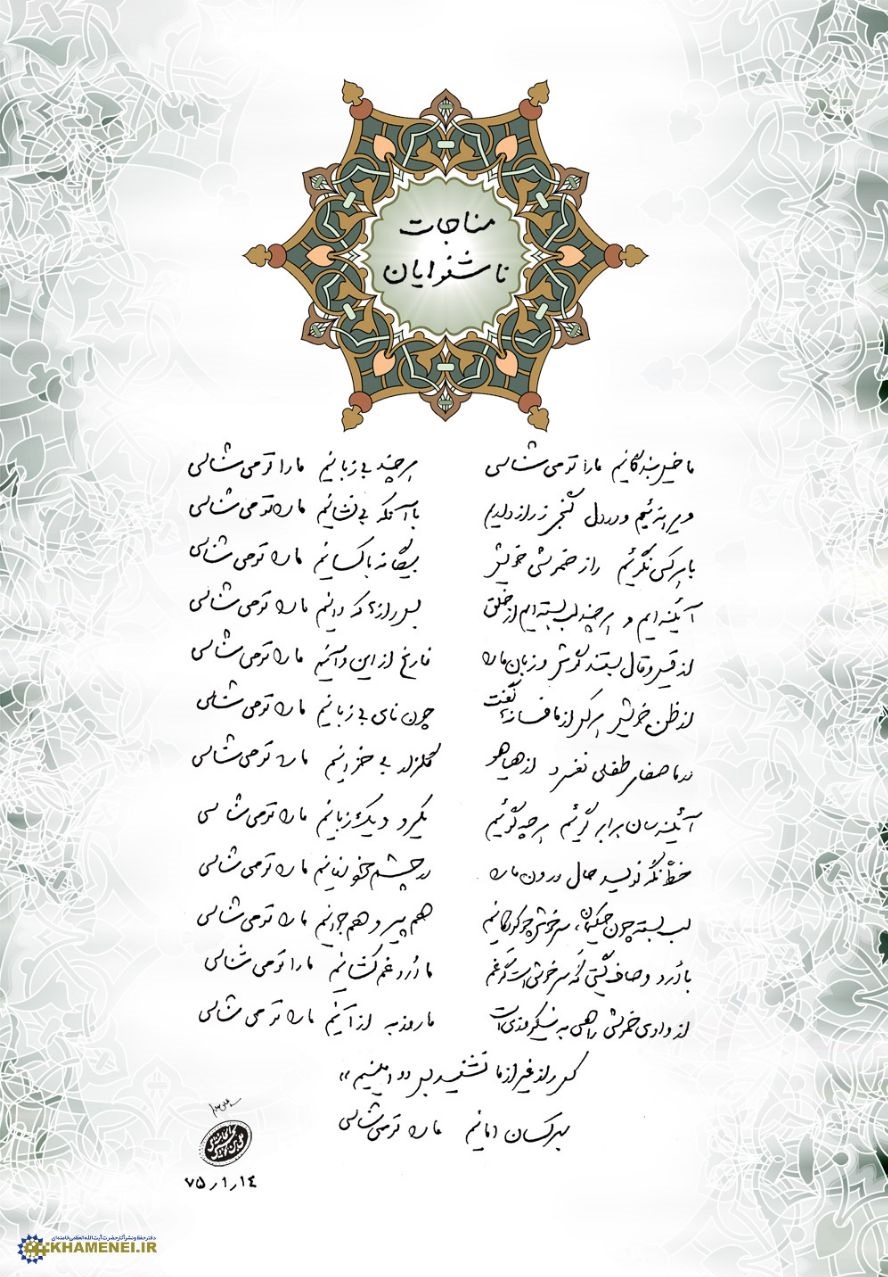 مناجات
ناشنوایان
ما خیل بندگانیم ما را تو می‌شناسی هر چند بی‌زبانیم ما را تو می‌شناسی
ویرانه‌ئیم و در دل گنجی ز راز داریم با آنکه بی‌نشانیم ما را تو می‌شناسی
با هر کسی نگوئیم راز خموشی خویش بیگانه با کسانیم ما را تو می‌شناسی
آئینه‌ایم و هر چند لب بسته‌ایم از خلق بس رازها که دانیم ما را تو می‌شناسی
از قیل و قال بستند گوش و زبان ما را فارغ از این و آنیم ما را تو می‌شناسی
از ظن خویش هر کس از ما فسانه‌ها گفت چون نای بی‌زبانیم ما را تو می‌شناسی
در ما صفای طفلی نفسرد از هیاهو گلزار بی‌خزانیم ما را تو می‌شناسی
آئینه‌سان برابر گوئیم هر چه گوئیم یکرو و یک زبانیم ما را تو می‌شناسی
خطّ نگه نویسد حال درون ما را در چشم خود نهانیم ما را تو می‌شناسی
لب بسته چون حکیمان، سر خوش چو کودکانیم هم پیر و هم جوانیم ما را تو می‌شناسی
با دُرد و صاف گیتی گه سرخوش است گه غم ما دُرد غم کشانیم ما را تو می‌شناسی
از وادی خموشی راهی به نیکروزی است ما روز به از آنیم ما را تو می‌شناسی
کس راز غیر از ما نشنید بس «امینیم»
بهر کسان امانیم ما را تو می‌شناسی
۷۵/۱/۱۴
KHAMENEI.IR